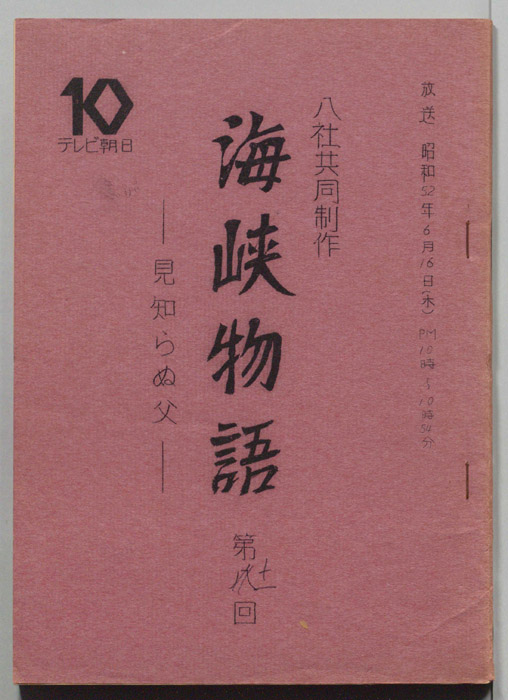 放送 昭和52年6月16日(木) PM10時〜10時54分
八社共同制作
海峡物語
第十一回
―見知らぬ父―
10
テレビ朝日